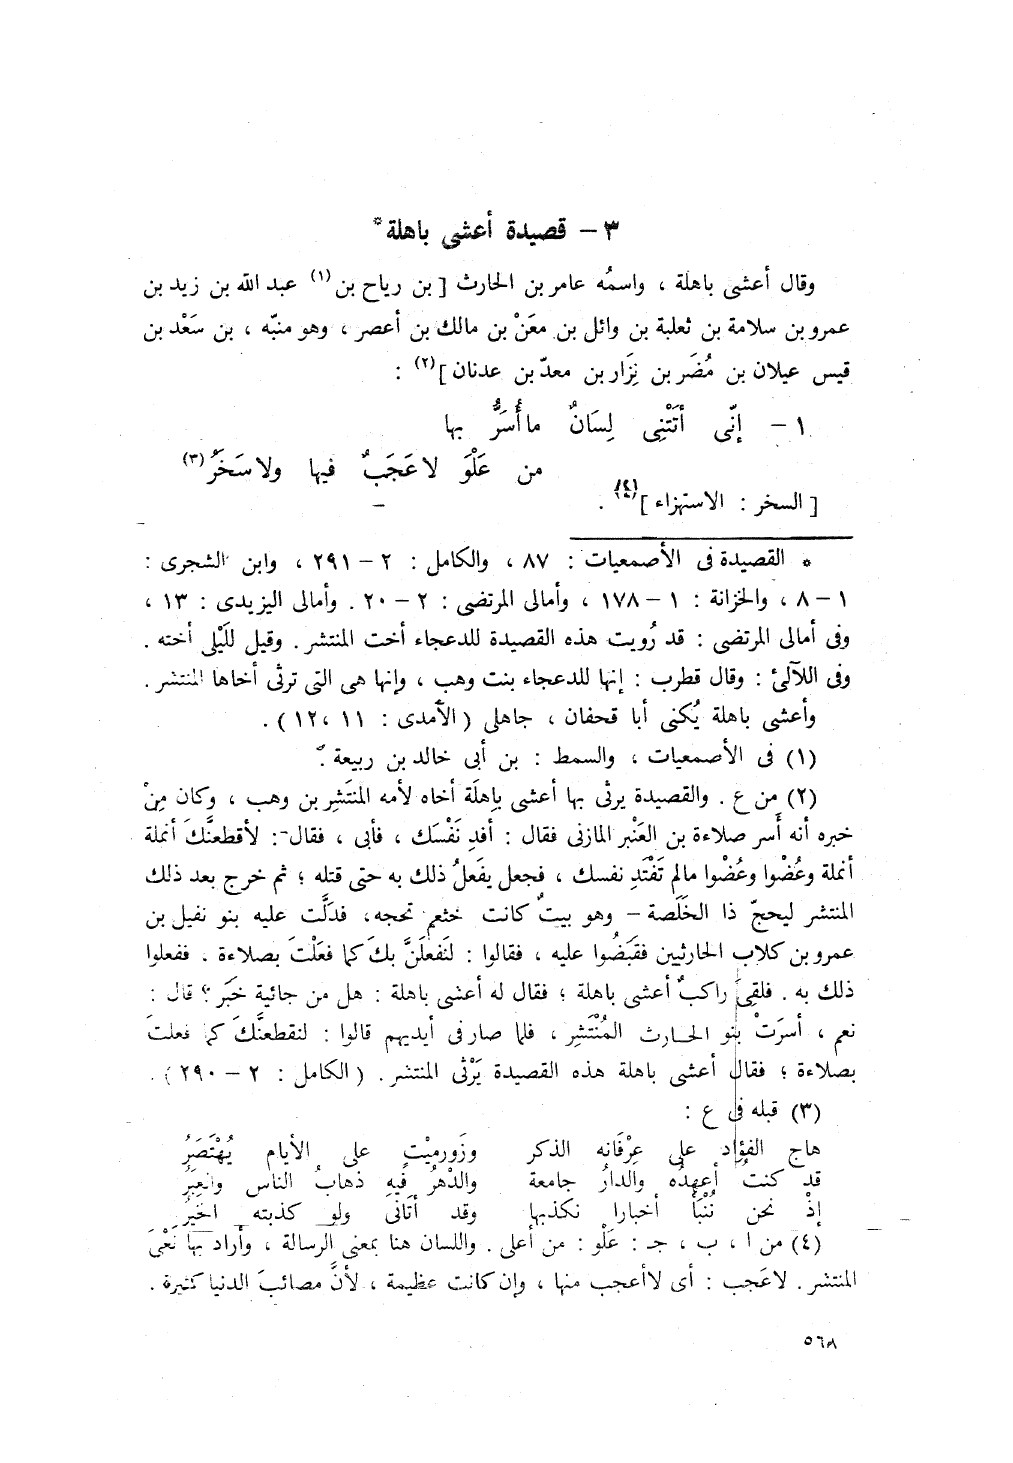 ٣ – قصيدة أعشى باهلة *
وقال أعشى باهلة ، واسمُه عامر بن الحارث [ بن رياح بن (١) عبد الله بن زيد بن
عمرو بن سلامة بن ثعلبة بن وائل بن معَنْ بن مالك بن أعصر ، وهو منبّه ، بن سَعْد بن
قيس عيلان بن مُضَر بن نِزَار بن معدّ بن عدنان ] (٢) :
١ – إنّى أتَتْنِى لِسَانٌ ما أُسَرُّ بها
من عَلْوَ لا عَجَبٌ فيها ولا سَخَرُ (٣)
[ السخر : الاستهزاء ] (٤) .
* القصيدة فى الأصمعيات : ٨٧ ، والكامل : ٢ – ٢٩١ ، وابن الشجرى :
١ – ٨ ، والخزانة : ١ – ١٧٨ ، وأمالى المرتضى : ٢ – ٢٠ . وأمالى اليزيدى : ١٣ ،
وفى أمالى المرتضى : قد رُويت هذه القصيدة للدعجاء أخت المنتشر . وقيل لليْلى أخته .
وفى اللآلئ : وقال قطرب : إنها للدعجاء بنت وهب ، وإنها هى التى ترثى أخاها المنتشر .
وأعشى باهلة يُكنى أبا قحفان ، جاهلى ( الآمدى : ١١ ، ١٢ ) .
(١) فى الأصمعيات ، والسمط : بن أبى خالد بن ربيعة .
(٢) من ع . والقصيدة يرثى بها أعشى باهلَة أخاه لأمه المنتَشِر بن وهب ، وكان مِنْ
خبره أنه أَسر صلاءة بن العَنْبر المازنى فقال : أفدِ نَفْسَك ، فأبى ، فقال : لأقطعنَّكَ أنملة
أنملة وعُضْوا وعُضْوا مالم تَفْتَدِ نفسك ، فجعل يفَعلُ ذلك به حتى قتله ؛ ثم خرج بعد ذلك
المنتشر ليحجّ ذا الخَلَصة – وهو بيتٌ كانت خثعم تحجه، فدلَّت عليه بنو نفيل بن
عمرو بن كلاب الحارثيين فقبَضُوا عليه ، فقالوا : لنَفعلَنَّ بكَ كما فعَلْتَ بصلاءة . ففعلوا
ذلك به . فلقِىَ راكبٌ أعشى باهلة ؛ فقال له أعشى باهلة : هل من جائية خبَر ؟ قال :
نعم ، أسرَتْ بنو الحارث المُنْتَشِر ، فلما صار فى أيديهم قالوا : لنقطعنَّكَ كما فعلتَ
بصلاءة ؛ فقال أعشى باهلة هذه القصيدة يَرْثى المنتشر . ( الكامل : ٢ – ٢٩٠ ) .
(٣) قبله فى ع :
هاج الفؤاد على عِرْفَانه الذكر وزَورمِيْتٍ على الأيام يُهْتَصَرُ
قد كنتُ أعهدُه والدارُ جامعة والدْهرُ فيهِ ذهابُ الناس والعِبَرُ
إذْ نحن نُنْبَأ أخبارا نكذبها وقد أتَانى ولو كذبته الخَبَرُ
(٤) من ا ، ب ، جـ : عَلْو : من أعلى . واللسان هنا بمعنى الرسالة ، وأراد بها نَعْىَ
المنتشر . لا عَجب : أى لا أعجب منها ، وإن كانت عظيمة ، لأنَّ مصائبَ الدنيا كثيرة .
٥٦٨